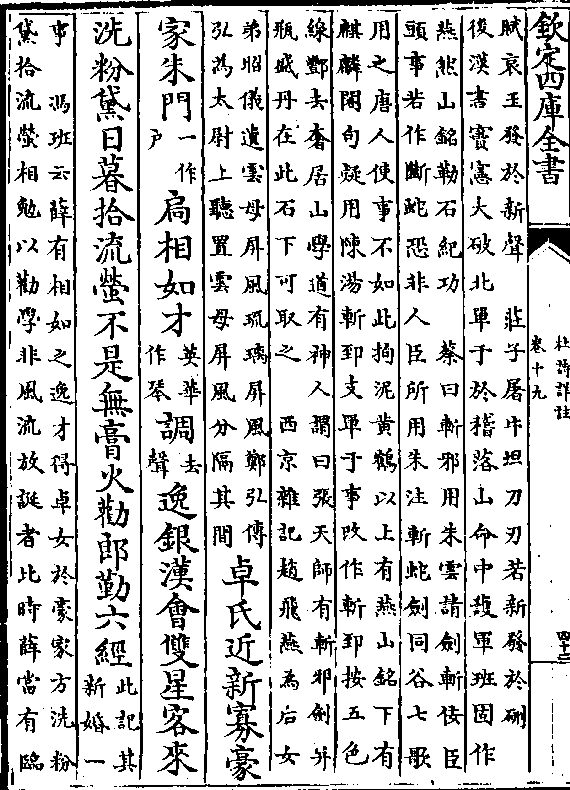 欽定四庫全書
杜詩詳註
卷十九
賦哀玉發於新聲　莊子屠牛坦刀刃若新發於硎
後漢書竇憲大破北單于於稽落山命中護軍班固作
燕然山銘勒石紀功　蔡曰斬邪用朱雲請劍斬佞臣
頭事若作斷蛇恐非人臣所用朱注斬蛇劍同谷七歌
用之唐人使事不如此拘泥黄鶴以上有燕山銘下有
麒麟閣句疑用陳湯斬郅支單于事改作斬郅按五色
線酆去奢居山學道有神人謂曰張天師有斬邪劍并
瓶盛丹在此石下可取之　西京雜記趙飛燕為后女
弟昭儀遺雲母屏風琉璃屏風鄭弘傳
弘為太尉上聽置雲母屏風分隔其間
卓氏近新寡豪
家朱門一作戶扃相如才英華作琴調去聲逸銀漢會雙星客來
洗粉黛日暮拾流螢不是無膏火勸郎勤六經此記其新婚一
事　馮班云薛有相如之逸才得卓女於豪家方洗粉
黛拾流螢相勉以勸學非風流放誕者比時薛當有臨